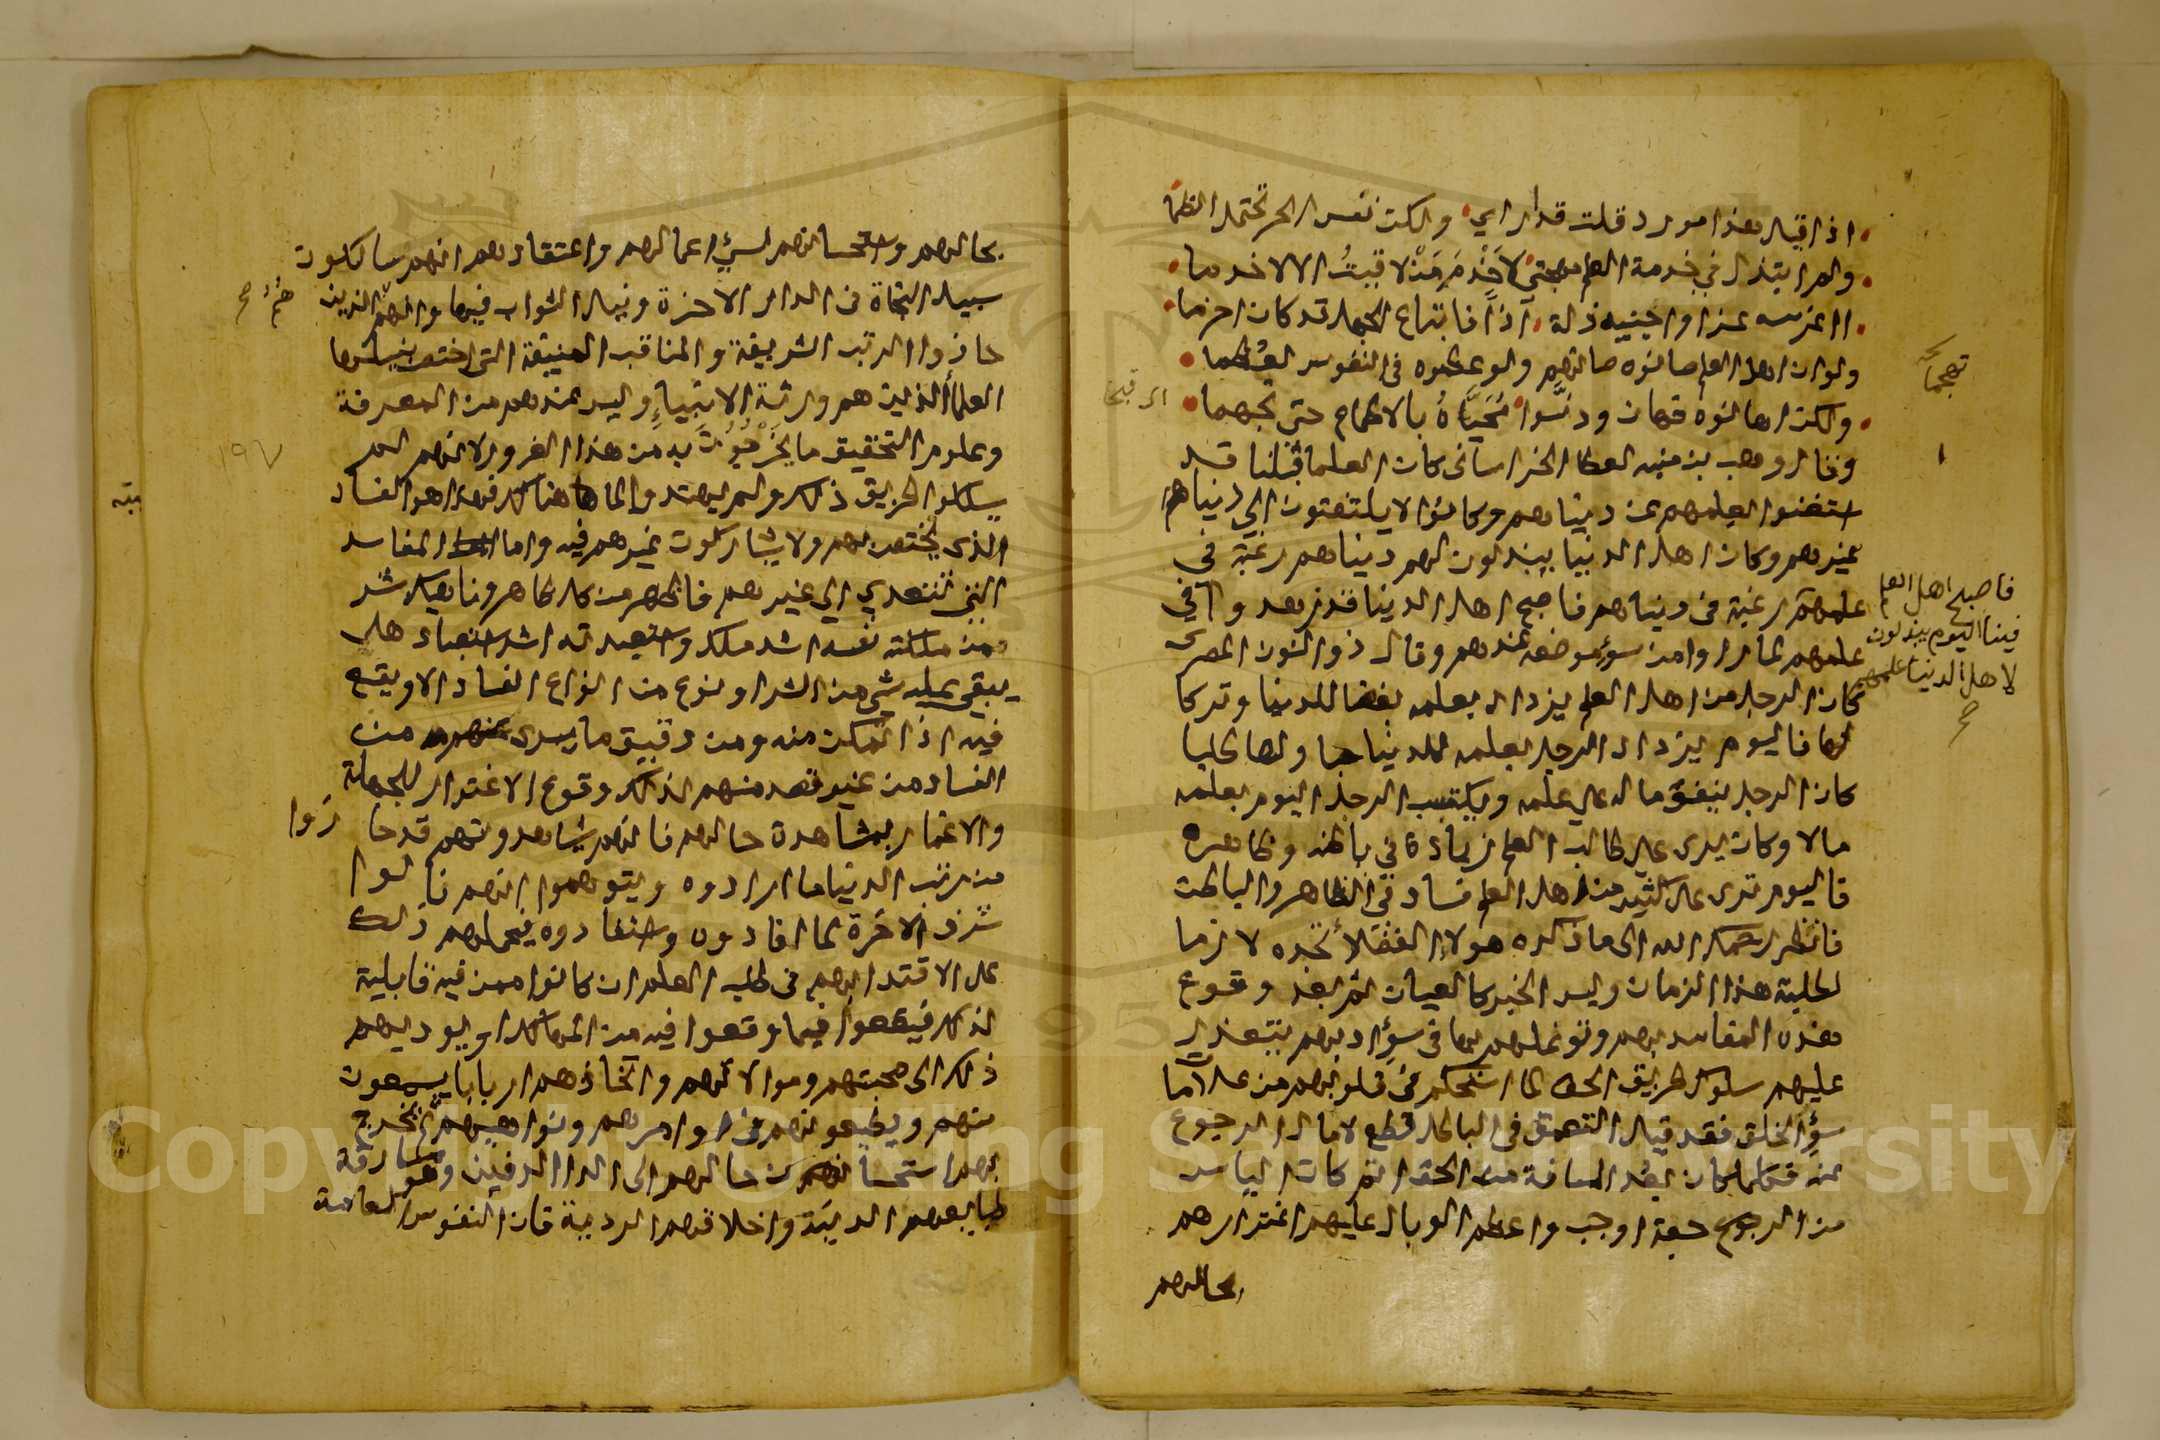 اذا قيل هذا مورد قلت قد اري ولكن نفس الحر تحتمل الظما
ولم ابتذل في خدمة العلم مهجتي لاخدم من لاقيت الا لاخدما
ااغرسه عزا واجنيه ذلة اذا فاتباع الجهل قد كان احزما
ولو ان اهل العلم صانوه صانهم ولو عظموه في النفوس لعظما
ولكن اهانوه فهان ودنسوا محياه بالاطماع حتى تجهما
وقال وهب بن منبه لعطا الخراساني كان العلما قبلنا قد
استغنوا بعلمهم عن دنياهم وكانوا لا يلتفتون الي دنيا
غيرهم وكان اهل الدنيا يبذلون لهم دنياهم رغبة في
علمهم رغبة في دنياهم فاصبح اهل الدنيا قد زهدوا في
علمهم لما راوا من سوء موضعه عندهم وقال ذو النون المصرى
كان الرجل من اهل العلم يزداد بعلمه بغضا للدنيا وتركا
لها فاليوم يزداد الرجل بعلمه للدنيا حبا ولها طلبا
كان الرجل ينفق ماله على علمه ويكتسب الرجل اليوم بعلمه
مالا وكان يرى على طالب العلم زيادة في باطنه وظاهره
فاليوم ترى على كثير من اهل العلم فساد في الظاهر والباطن
فانظر رحمك الله الى ما ذكره هولاء الفضلا تجده لازما
لطلبة هذا الزمان وليس الخبر كالعيان ثم بعد وقوع
هذه المفاسد بهم وتوغلهم بها في سوء ادبهم يتعذر
عليهم سلوك طريق الحق لما استحكم في قلوبهم من علاما
سؤ الخلق فقد قيل التعمق في الباطل قطع لامال الرجوع
عنه فكلما كان بعد المسافة من الحق اتم كان الياس
من الرجوع حقه اوجب واعظم الوبال عليهم اغترارهم
بحالهم
فاصبح اهل العلم
فينا اليوم يبذلون
لاهل الدنيا علمهم
صح
بحالهم واستحسانهم لسئ اعمالهم واعتقادهم انهم سالكون
سبيل النجاة في الدار الاخرة ونيل الثواب فيها وانهم الذين
حازوا الرتب الشريفة والمناقب المنيفة التي اختص بنيلها
العلماء الذين هم ورثة الانبياء وليس عندهم من المعرفة
وعلوم التحقيق ما يخرجون به من هذا الغرور لانهم لم
يسلكوا طريق ذلك ولم يهتدوا لما هنالك فهذا هو الفساد
الذى يختص بهم ولا يشاركون غيرهم فيه واما المفاسد
التي تتعدي الي غيرهم فاظهر من كل ظاهر وناهيك بشر
من ملكته نفسه اشد ملك واستعبدته اشد استعباد هل
يبقي عليه شي من الشر او نوع من انواع الفساد الا ويقع
فيه اذا تمكن منه ومن دقيق ما يسرى منهم من
الفساد من غير قصد منهم لذلك وقوع الاغترار للجهلة
والاغمار بمشاهدة حالهم فانهم يشاهدونهم قد حا
زوا
من رتب الدنيا ما ارادوه ويتوهموا انهم نالوا
شرف الاخرة لما افادون واستفادوه فيحملهم ذلك
على الاقتداء بهم في طلب العلم ان كانوا ممن فيه قابلية
لذلك فيقعوا فيما وقعوا فيه من المهالك او يوديهم
ذلك الى صحبتهم وموالاتهم واتخاذهم اربابا يسمعون
منهم ويطيعونهم في اوامرهم ونواهيهم ثم يخرج
بهم استحسانهم حالهم الى الداء الدفين وهو مسارقة
طبايعهم الدنية واخلاقهم الردية فان النفوس العامة
١٩٧